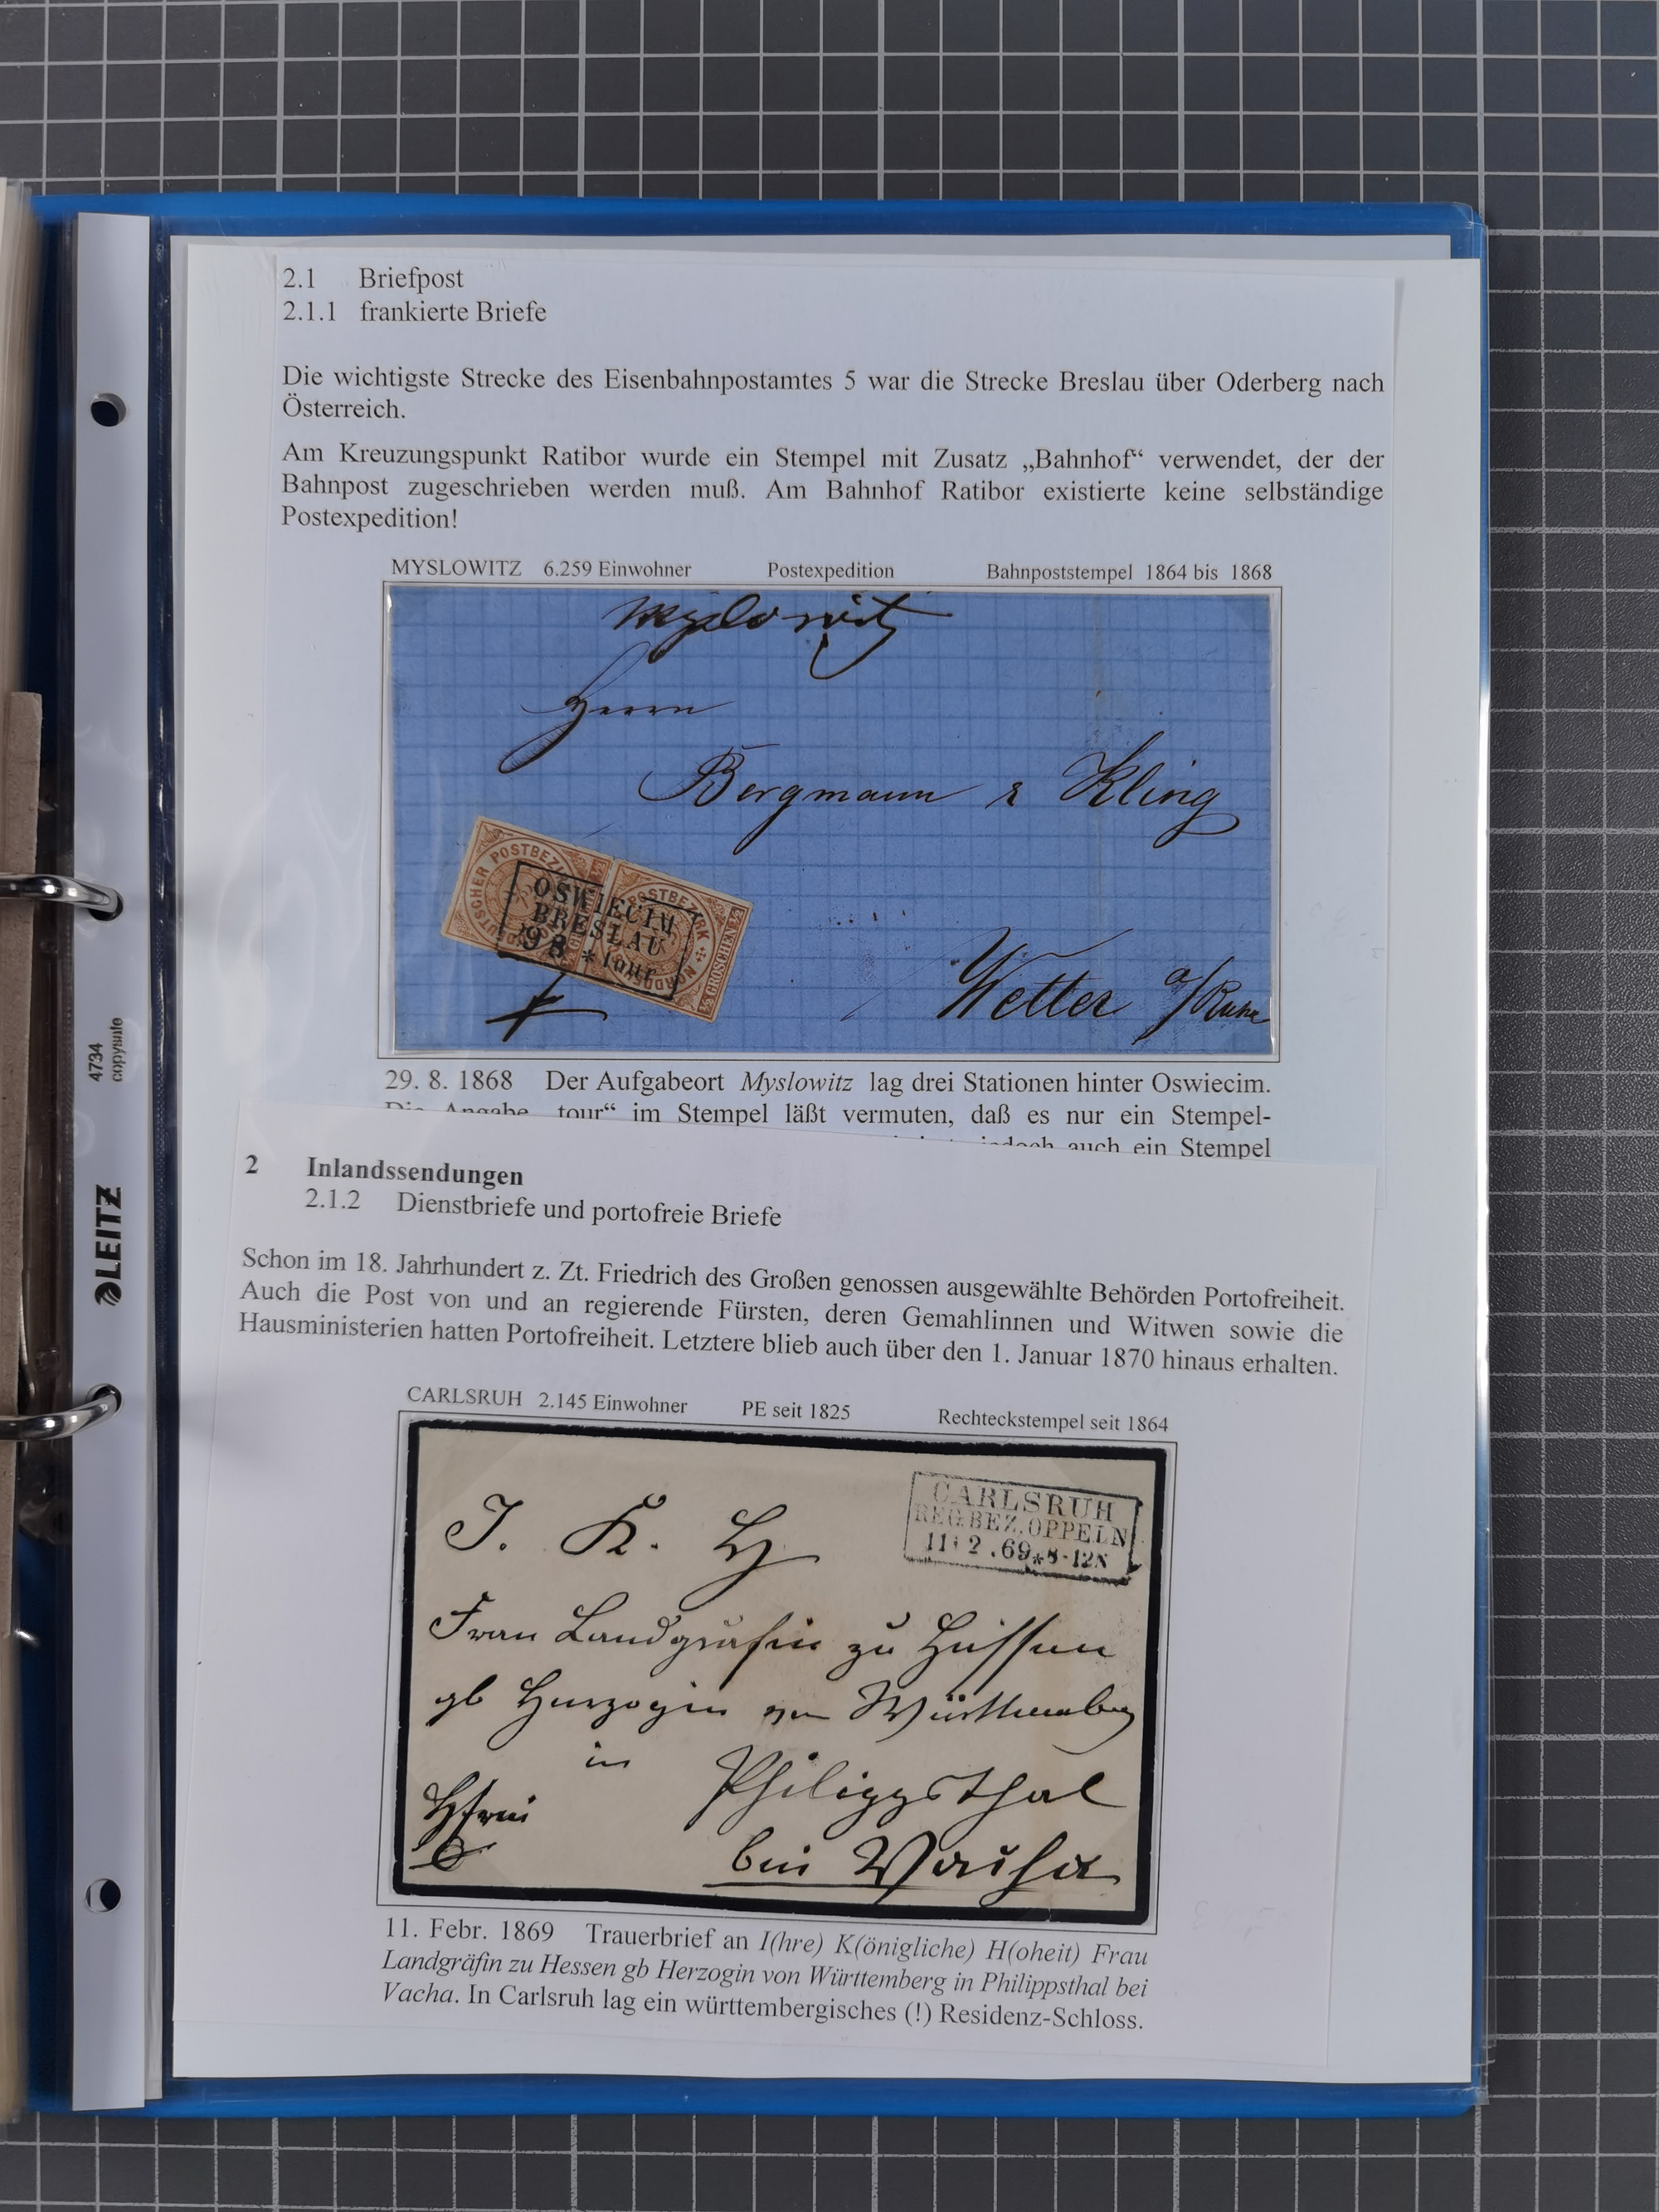 2.1 Briefpost
2.1.1 frankierte Briefe
Die wichtigste Strecke des Eisenbahnpostamtes 5 war die Strecke Breslau über Oderberg nach
Österreich.
Am Kreuzungspunkt Ratibor wurde ein Stempel mit Zusatz „Bahnhof“ verwendet, der der
Bahnpost zugeschrieben werden muß. Am Bahnhof Ratibor existierte keine selbständige
Postexpedition!
MYSLOWITZ 6.259 Einwohner Postexpedition Bahnpoststempel 1864 bis 1868
Myslowitz
Herrn
Bergmann & Kling
OSWIECIM
BRESLAU
29 8 * tour
Wetter a/Ruhr
29. 8. 1868 Der Aufgabeort Myslowitz lag drei Stationen hinter Oswiecim.
Die Angabe „tour“ im Stempel läßt vermuten, daß es nur ein Stempel-
jedoch auch ein Stempel
2 Inlandssendungen
2.1.2 Dienstbriefe und portofreie Briefe
Schon im 18. Jahrhundert z. Zt. Friedrich des Großen genossen ausgewählte Behörden Portofreiheit.
Auch die Post von und an regierende Fürsten, deren Gemahlinnen und Witwen sowie die
Hausministerien hatten Portofreiheit. Letztere blieb auch über den 1. Januar 1870 hinaus erhalten.
CARLSRUH 2.145 Einwohner PE seit 1825 Rechteckstempel seit 1864
CARLSRUH
REG.BEZ.OPPELN
11 2 . 69 * 8-12N
J. K. H
Frau Landgräfin zu Hessen
gb Herzogin von Württemberg
in Philippsthal
bei Vacha
11. Febr. 1869 Trauerbrief an I(hre) K(önigliche) H(oheit) Frau
Landgräfin zu Hessen gb Herzogin von Württemberg in Philippsthal bei
Vacha. In Carlsruh lag ein württembergisches (!) Residenz-Schloss.
LEITZ
4734
copysafe